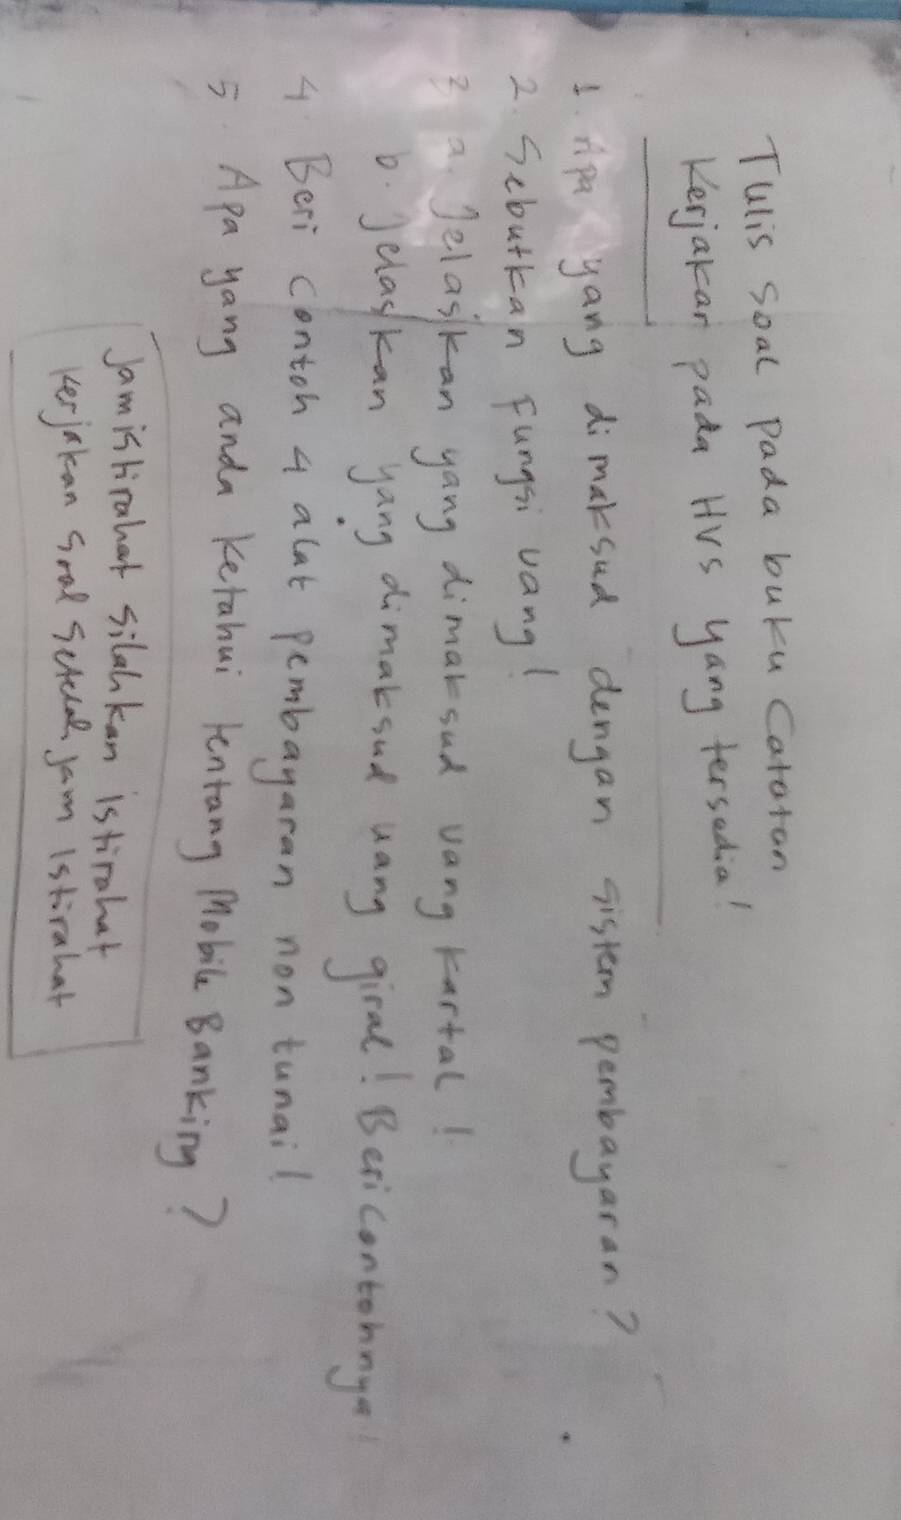 Tulis soal pada buku Catatan
Kerjakan pada HVS yang tersedia!
1. Apa yang dimaksud dengan sistem pembayaran?
2. Sebutkan Fungsi uang!
3 a. Jelaskan yang dimaksud uang kartal!
b. Jelaskan yang dimaksud uang giral! Beri contohnya!
4. Beri contoh 4 alat pembayaran non tunai!
5. Apa yang anda ketahui tentang Mobile Banking?
Jam istirahat silahkan istirahat
Kerjakan soal setelah jam istirahat